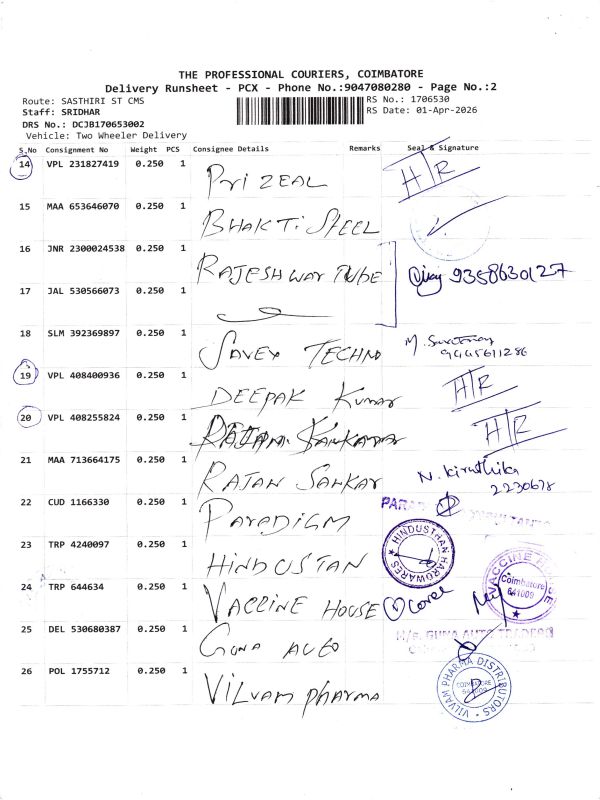 THE PROFESSIONAL COURIERS, COIMBATORE
Delivery Runsheet - PCX - Phone No.:9047080280 - Page No.:2
Route: SASTHIRI ST CMS RS No.: 1706530
Staff: SRIDHAR RS Date: 01-Apr-2026
DRS No.: DCJB170653002
Vehicle: Two Wheeler Delivery
S.No Consignment No Weight PCS Consignee Details Remarks Seal & Signature
14 VPL 231827419 0.250 1 Pri ZEAL H/R
15 MAA 653646070 0.250 1 BHAKTi STEEL
16 JNR 2300024538 0.250 1 RAJESHWAR TUBE 9358630127
17 JAL 530566073 0.250 1
18 SLM 392369897 0.250 1 SAVEX TECHNO M.
9445611286
19 VPL 408400936 0.250 1 DEEPAK Kumar H/R
20 VPL 408255824 0.250 1 H/R
21 MAA 713664175 0.250 1 RAJAN SANKAR N. Kiruthika
2230678
22 CUD 1166330 0.250 1 PARADIGM
23 TRP 4240097 0.250 1 HINDUSTAN HINDUSTHAN HARDWARES
24 TRP 644634 0.250 1 VACCINE HOUSE VACCINE HOUSE
Coimbatore
641009
25 DEL 530680387 0.250 1 GUNA AUTO M/s. GUNA AUTO TRADERS
26 POL 1755712 0.250 1 VILVAM PHARMA VILVAM PHARMA DISTRIBUTORS
COIMBATORE